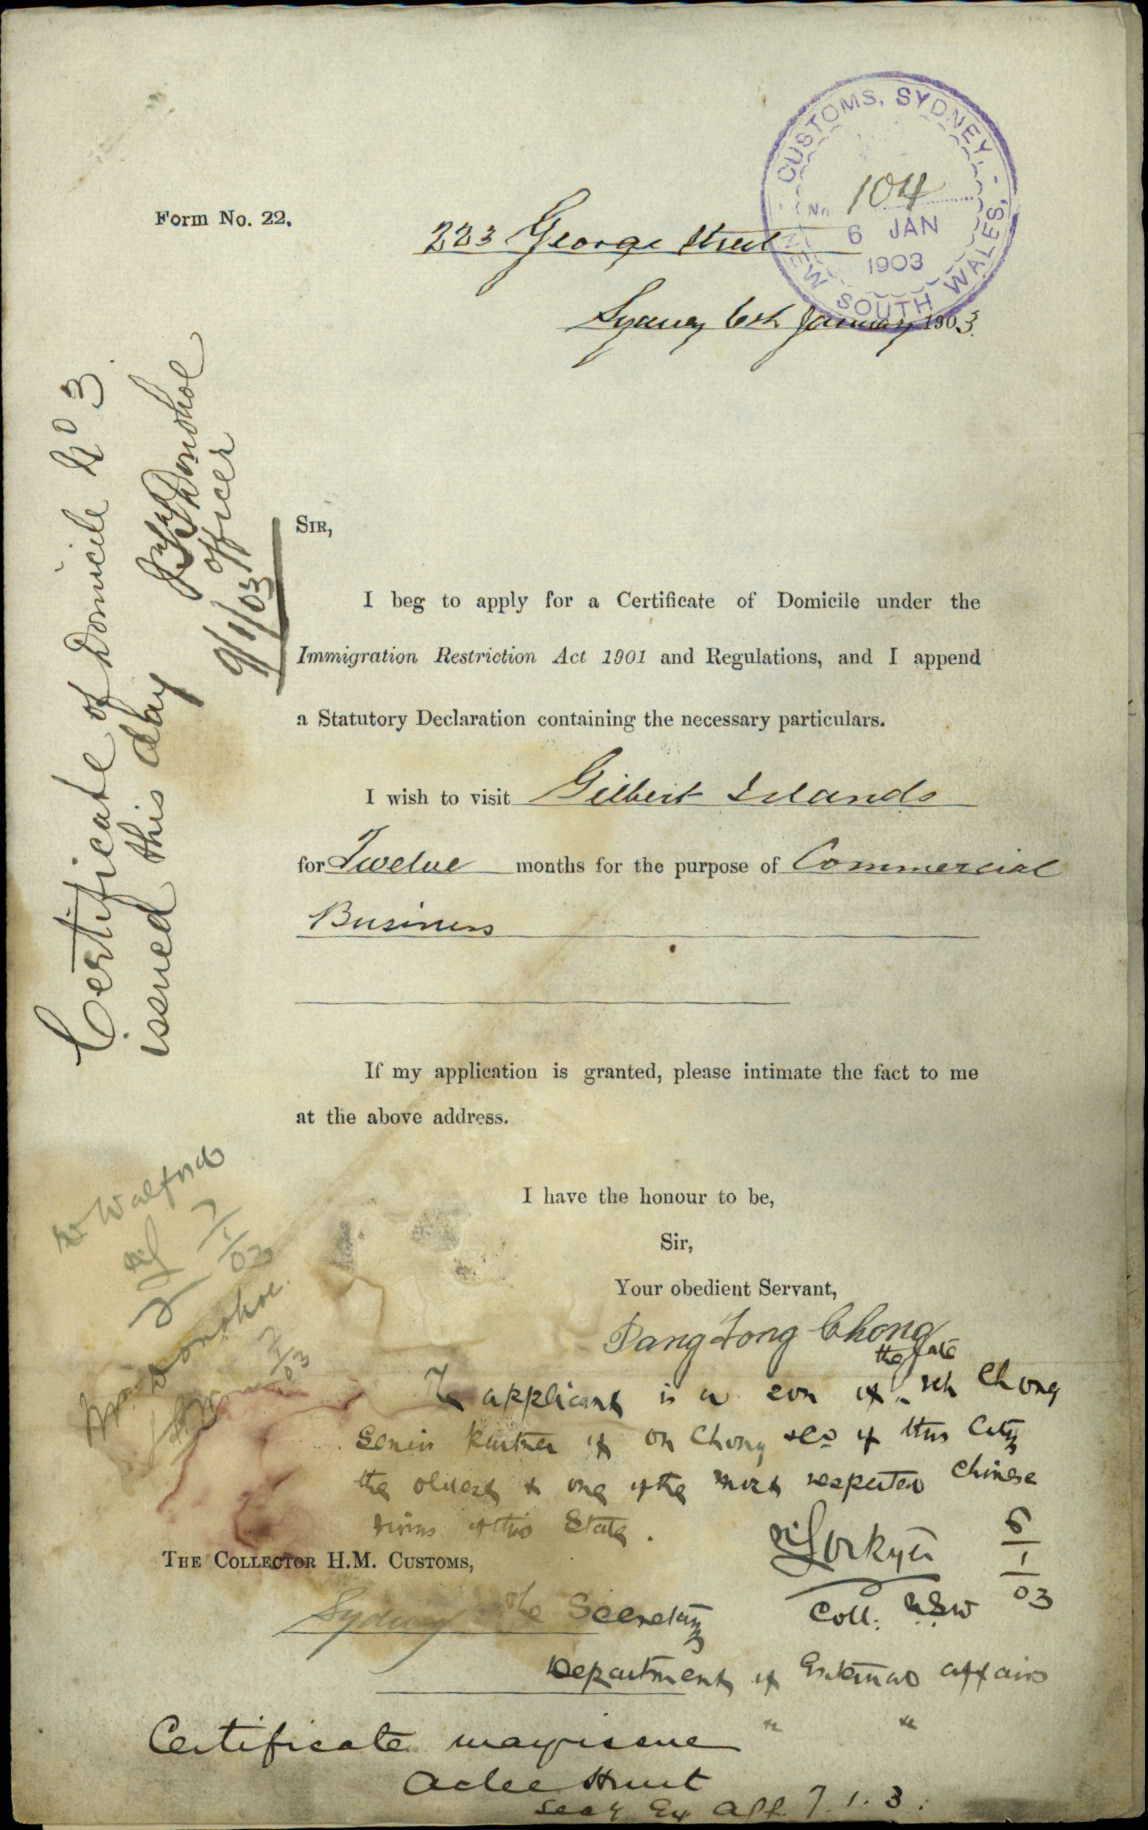 CUSTOMS, SYDNEY,
No 104
6 JAN
1903
NEW SOUTH WALES.
Form No. 22.
223 George Street
Sydney 6th January 1903.
Certificate of Domicile No 3.
issued this day
Donohoe
Officer
9/1/03
SIR,
I beg to apply for a Certificate of Domicile under the
Immigration Restriction Act 1901 and Regulations, and I append
a Statutory Declaration containing the necessary particulars.
I wish to visit Gilbert Islands
for Twelve months for the purpose of Commercial
Business
If my application is granted, please intimate the fact to me
at the above address.
I have the honour to be,
Sir,
Your obedient Servant,
Pang Tong Chong
the late
The applicant is a son of Chong
Senior Partner of On Chong &Co of this City
the oldest & one of the most respected Chinese
firms of this State.
Lockyer
Coll. NSW
6
1
03
Mr Walford
7
1
03
Mr Donohoe
7
1
03
THE COLLECTOR H.M. CUSTOMS,
Sydney
The Secretary
Department of External Affairs
Certificate may issue
Atlee Hunt
Secy Ex Aff. 7.1.3.